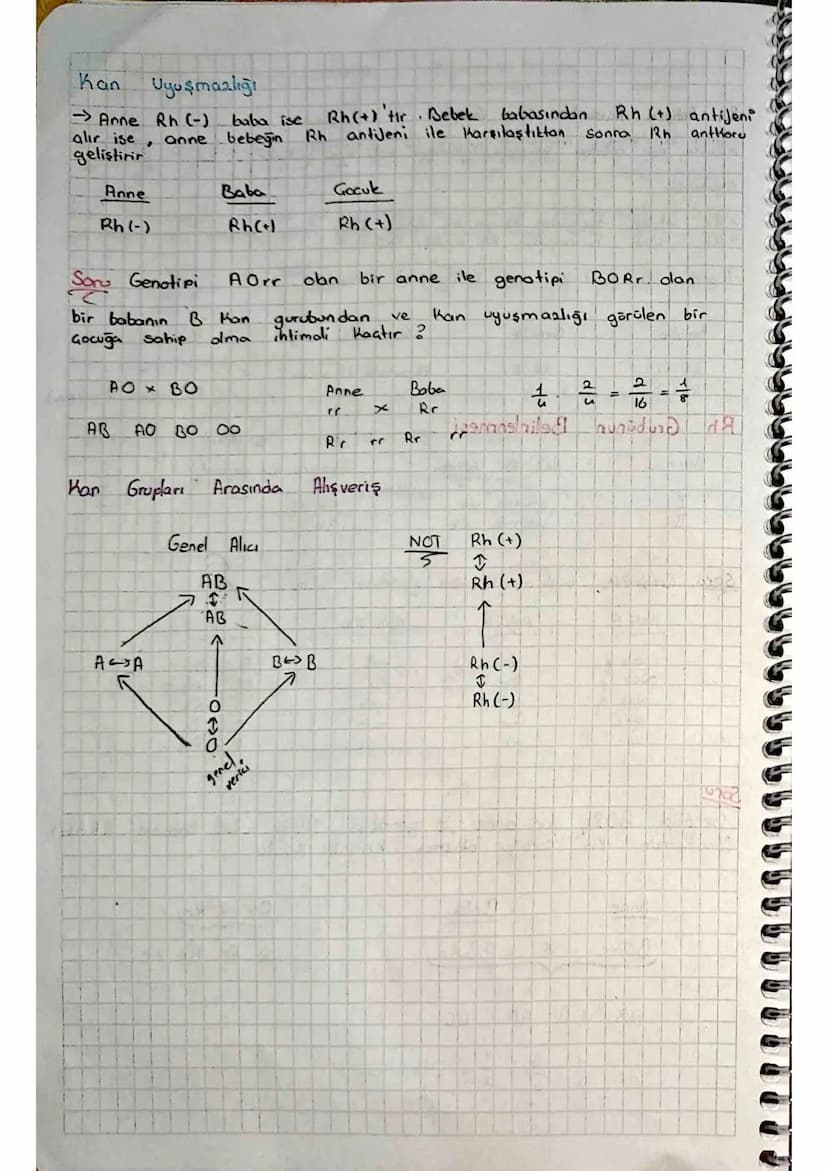 Kan Uyuşmazlığı
→ Anne Rh (-) baba ise Rh(+)'tir. Bebek babasından Rh (+) antijeni
alır ise, anne bebeğin Rh antijeni ile karşılaştıktan sonra Rh antikoru
geliştirir
Anne Baba Çocuk
Rh (-) Rh(+) Rh (+)
Soru Genotipi AOrr olan bir anne ile genotipi BORr. olan
bir babanın B kan gurubundan ve kan uyuşmazlığı görülen bir
çocuğa sahip olma ihtimali kaçtır ?
AO x BO Anne Baba 1/4 . 2/4 = 2/16 = 1/8
rr x Rr
AB AO BO OO
Rr rr Rr rr
Rh Grubunun Belirlenmesi
Kan Grupları Arasında Alışveriş
Genel Alıcı
AB
↕
AB
A↔A B↔B
O
↕
O
genel verici
NOT Rh (+)
↕
Rh (+)
↑
Rh (-)
↕
Rh (-)
Soru